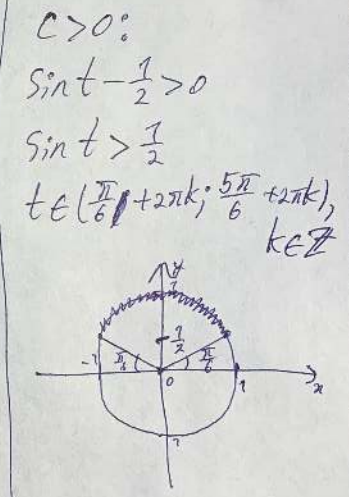 C>0:
Sin t - 1/2 > 0
Sin t > 1/2
t ∈ (π/6 + 2πk; 5π/6 + 2πk),
k ∈ Z
y
1
1/2
-1 π/6 π/6
0 1 x